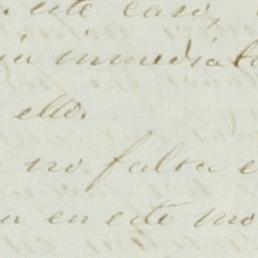 este caso,
inmediata
ello.
no falsa e
en este mo